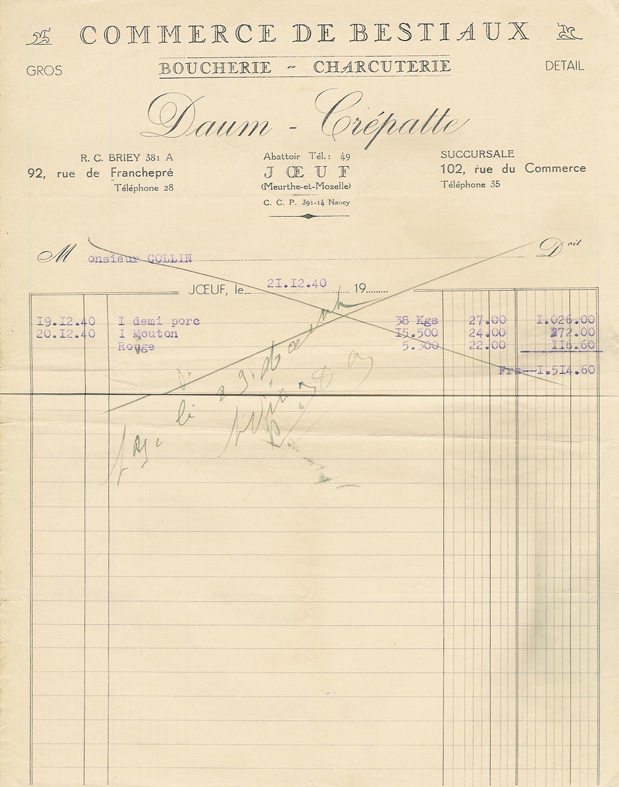 COMMERCE DE BESTIAUX
GROS BOUCHERIE - CHARCUTERIE DETAIL
Daum - Crépatte
R. C. BRIEY 381 A
92, rue de Franchepré
Téléphone 28
Abattoir Tél.: 49
JŒUF
(Meurthe-et-Moselle)
C. C. P. 391-14 Nancy
SUCCURSALE
102, rue du Commerce
Téléphone 35
Monsieur COLLIN Doit
JŒUF, le 21.12.40 19
19.12.40 I demi porc 38 Kgs 27.00 I.026.00
20.12.40 I Mouton 15.500 24.00 372.00
Rouge 5.300 22.00 116.60
Frs--I.514.60
le 23